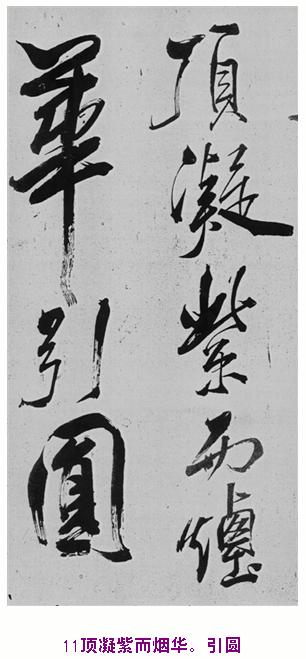 頂凝紫而煙
華引圓
11顶凝紫而烟华。引圆